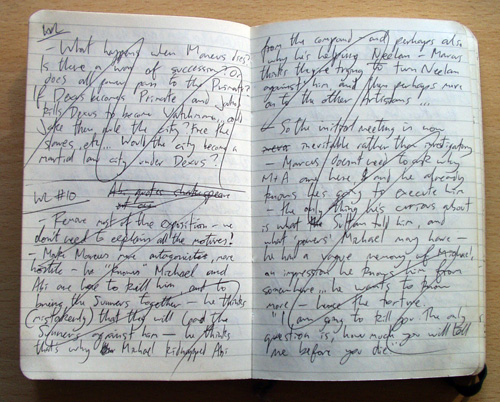 WL
- What happens when Marcus dies?
Is there a way of succession? Or
does all power pass to the Primate?
If Dexus becomes Primate and John
kills Dexus to become Watchman, could
Jake then rule the city? Free the
slaves, etc... Would the city become a
martial law city under Dexus?
WL #10
- Remove most of the exposition - we
don't need to explain all the motives!
- Make Marcus more antagonistic, more
hostile - he "knows" Michael and
Abi are here to kill him, and to
bring the Sinners together - he thinks
(mistakenly) that they will lead the
Sinners against him - he thinks
that's why Michael kidnapped Abi
from the compound - and perhaps also
why he's helping Neelan - Marcus
thinks they're trying to turn Neelan
against him, and then perhaps move
on to the other Artisans...
- So the initial meeting is now
inevitable rather than investigatory
- Marcus doesn't need to ask why
M+A are here, and he already
knows he's going to execute him
- The only thing he's curious about
is what Sittan told him, and
what 'powers' Michael may have -
he had a vague memory of Michael,
an impression he knows him from
somewhere... he wants to know
more - hence the torture
"I am going to kill you. The only
question is, how much you will tell
me before you die"